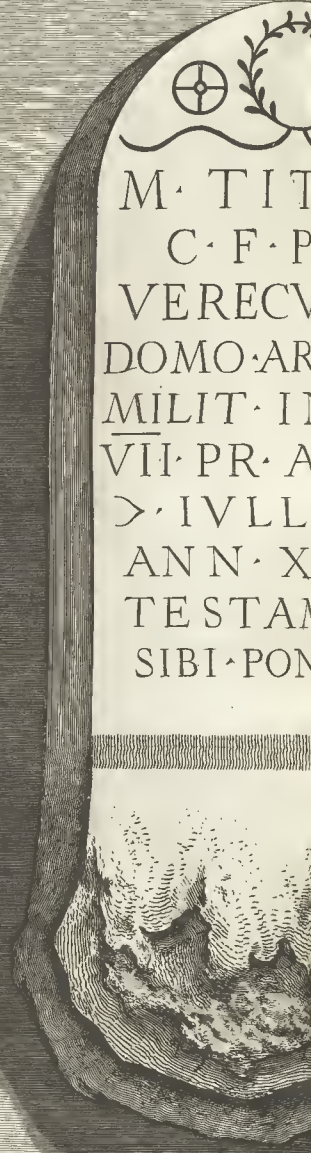 M · TIT
C · F · P
VERECV
DOMO · AR
MILIT · IN
VII · PR · A
> · IVLL
ANN · X
TESTAM
SIBI · PON